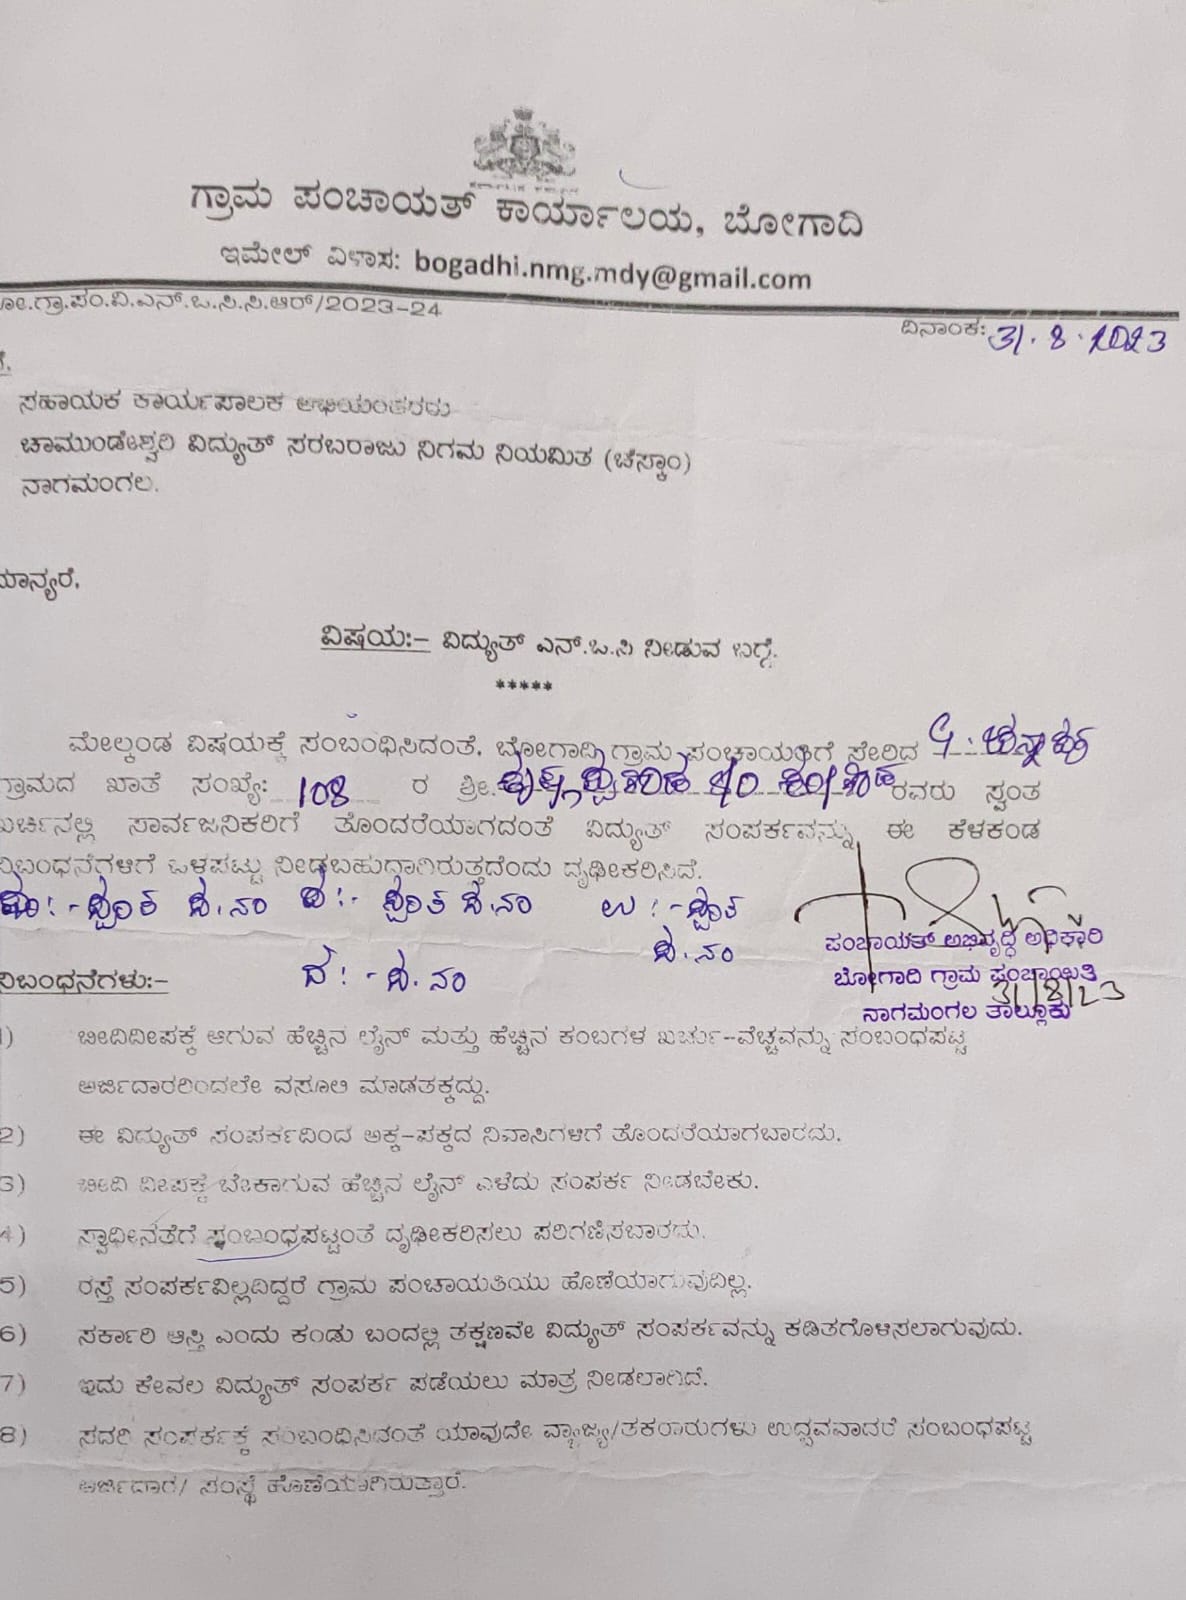 ಗ್ರಾಮ ಪಂಚಾಯತ್ ಕಾರ್ಯಾಲಯ, ಬೋಗಾದಿ
ಇಮೇಲ್ ವಿಳಾಸ: bogadhi.nmg.mdy@gmail.com
ಗ್ರಾ.ಪಂ.ವಿ.ಎನ್.ಒ.ಸಿ.ಸಿ.ಆರ್/2023-24
ದಿನಾಂಕ: 31.8.2023
ಸಹಾಯಕ ಕಾರ್ಯಪಾಲಕ ಅಭಿಯಂತರರು
ಚಾಮುಂಡೇಶ್ವರಿ ವಿದ್ಯುತ್ ಸರಬರಾಜು ನಿಗಮ ನಿಯಮಿತ (ಚೆಸ್ಕಾಂ)
ನಾಗಮಂಗಲ.
ಮಾನ್ಯರೆ,
ವಿಷಯ:- ವಿದ್ಯುತ್ ಎನ್.ಒ.ಸಿ ನೀಡುವ ಬಗ್ಗೆ.
*****
ಮೇಲ್ಕಂಡ ವಿಷಯಕ್ಕೆ ಸಂಬಂಧಿಸಿದಂತೆ, ಬೋಗಾದಿ ಗ್ರಾಮ ಪಂಚಾಯತಿಗೆ ಸೇರಿದ
ಗ್ರಾಮದ ಖಾತೆ ಸಂಖ್ಯೆ: 108 ರ ಶ್ರೀ. ರವರು ಸ್ವಂತ
ಖರ್ಚಿನಲ್ಲಿ ಸಾರ್ವಜನಿಕರಿಗೆ ತೊಂದರೆಯಾಗದಂತೆ ವಿದ್ಯುತ್ ಸಂಪರ್ಕವನ್ನು ಈ ಕೆಳಕಂಡ
ನಿಬಂಧನೆಗಳಿಗೆ ಒಳಪಟ್ಟು ನೀಡಬಹುದಾಗಿರುತ್ತದೆಂದು ದೃಢೀಕರಿಸಿದೆ.
ಉ :-
ಪಂಚಾಯತ್ ಅಭಿವೃದ್ಧಿ ಅಧಿಕಾರಿ
ಬೋಗಾದಿ ಗ್ರಾಮ ಪಂಚಾಯಿತಿ
31/8/23
ನಾಗಮಂಗಲ ತಾಲ್ಲೂಕು
ನಿಬಂಧನೆಗಳು:-
1) ಬೀದಿದೀಪಕ್ಕೆ ಆಗುವ ಹೆಚ್ಚಿನ ಲೈನ್ ಮತ್ತು ಹೆಚ್ಚಿನ ಕಂಬಗಳ ಖರ್ಚು-ವೆಚ್ಚವನ್ನು ಸಂಬಂಧಪಟ್ಟ
ಅರ್ಜಿದಾರರಿಂದಲೇ ವಸೂಲಿ ಮಾಡತಕ್ಕದ್ದು.
2) ಈ ವಿದ್ಯುತ್ ಸಂಪರ್ಕದಿಂದ ಅಕ್ಕ-ಪಕ್ಕದ ನಿವಾಸಿಗಳಿಗೆ ತೊಂದರೆಯಾಗಬಾರದು.
3) ಬೀದಿ ದೀಪಕ್ಕೆ ಬೇಕಾಗುವ ಹೆಚ್ಚಿನ ಲೈನ್ ಎಳೆದು ಸಂಪರ್ಕ ನೀಡಬೇಕು.
4) ಸ್ವಾಧೀನತೆಗೆ ಸಂಬಂಧ್ರಪಟ್ಟಂತೆ ದೃಢೀಕರಿಸಲು ಪರಿಗಣಿಸಬಾರದು.
5) ರಸ್ತೆ ಸಂಪರ್ಕವಿಲ್ಲದಿದ್ದರೆ ಗ್ರಾಮ ಪಂಚಾಯತಿಯು ಹೊಣೆಯಾಗುವುದಿಲ್ಲ.
6) ಸರ್ಕಾರಿ ಆಸ್ತಿ ಎಂದು ಕಂಡು ಬಂದಲ್ಲಿ ತಕ್ಷಣವೇ ವಿದ್ಯುತ್ ಸಂಪರ್ಕವನ್ನು ಕಡಿತಗೊಳಿಸಲಾಗುವುದು.
7) ಇದು ಕೇವಲ ವಿದ್ಯುತ್ ಸಂಪರ್ಕ ಪಡೆಯಲು ಮಾತ್ರ ನೀಡಲಾಗಿದೆ.
8) ಸದರಿ ಸಂಪರ್ಕಕ್ಕೆ ಸಂಬಂಧಿಸಿದಂತೆ ಯಾವುದೇ ವ್ಯಾಜ್ಯ/ತಕರಾರುಗಳು ಉದ್ಭವವಾದರೆ ಸಂಬಂಧಪಟ್ಟ
ಅರ್ಜಿದಾರ/ ಸಂಸ್ಥೆ ಹೊಣೆಯಾಗಿರುತ್ತಾರೆ.